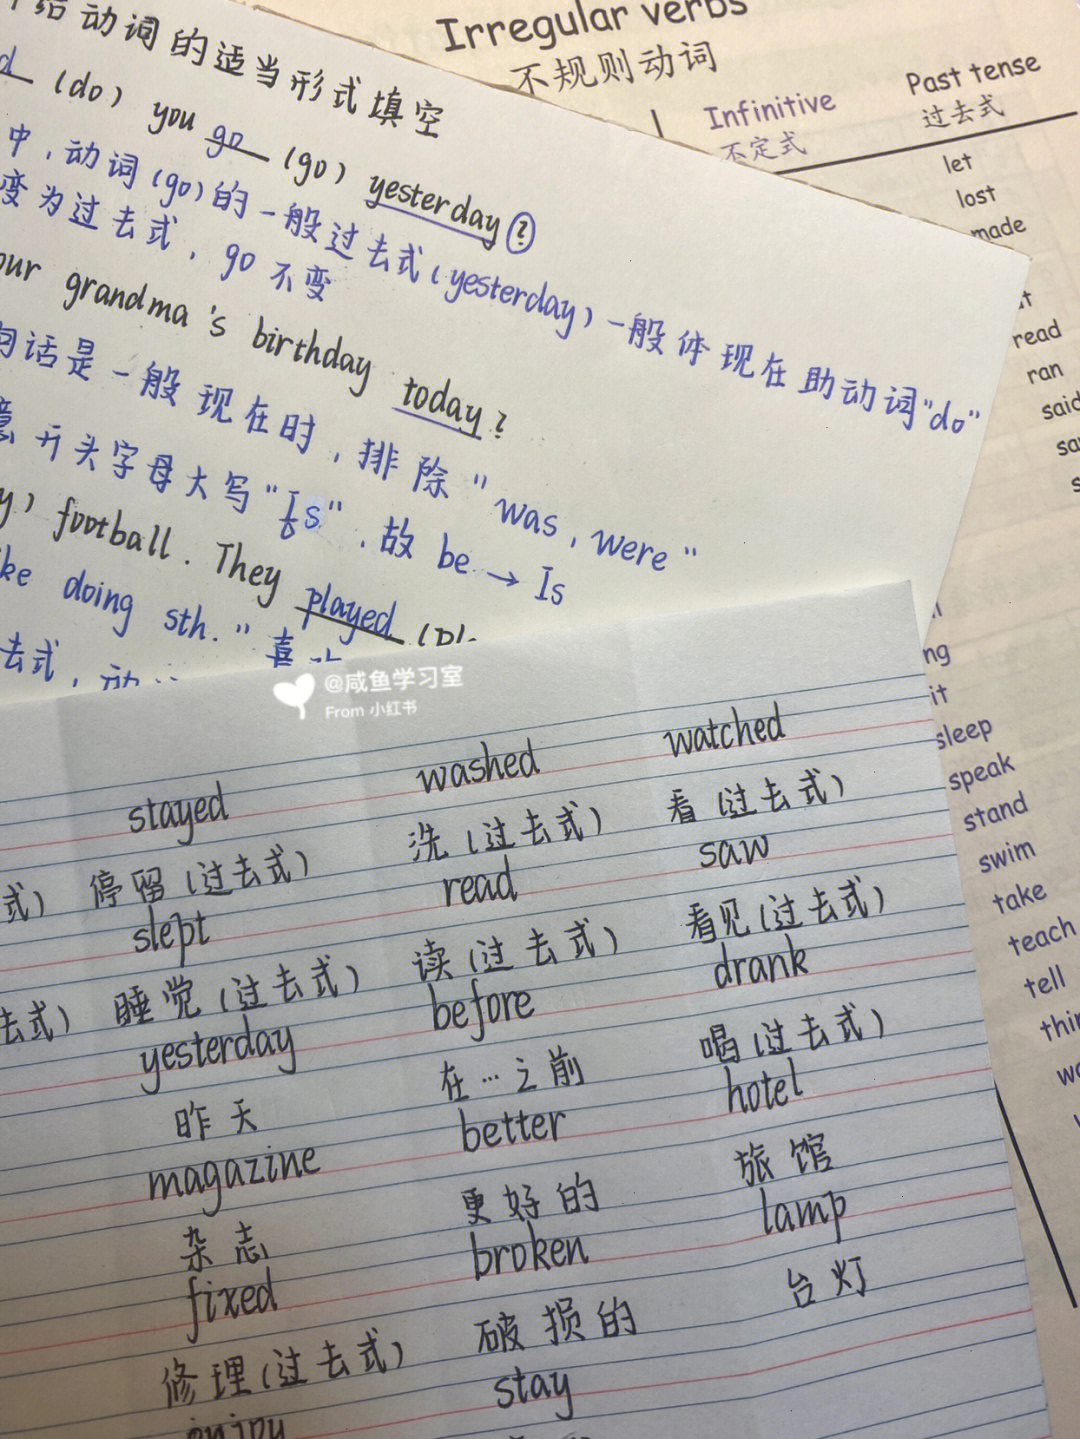 给动词的适当形式填空
(do) you go (go) yesterday?
中,动词(go)的一般过去式(yesterday)一般体现在助动词"do"
变为过去式,go不变
our grandma's birthday today?
句话是一般现在时,排除"was, were"
意开头字母大写"Is",故be→Is
football. They played
doing sth."喜
去式,动
Irregular verbs
不规则动词
Infinitive
Past tense
不定式
过去式
let
lost
made
read
ran
said
@咸鱼学习室
From 小红书
stayed washed watched
式) 停留(过去式) 洗(过去式) 看(过去式)
slept read saw
去式) 睡觉(过去式) 读(过去式) 看见(过去式)
yesterday before drank
昨天 在…之前 喝(过去式)
magazine better hotel
杂志 更好的 旅馆
fixed broken lamp
修理(过去式) 破损的 台灯
enjoy stay
sleep
speak
stand
swim
take
teach
tell